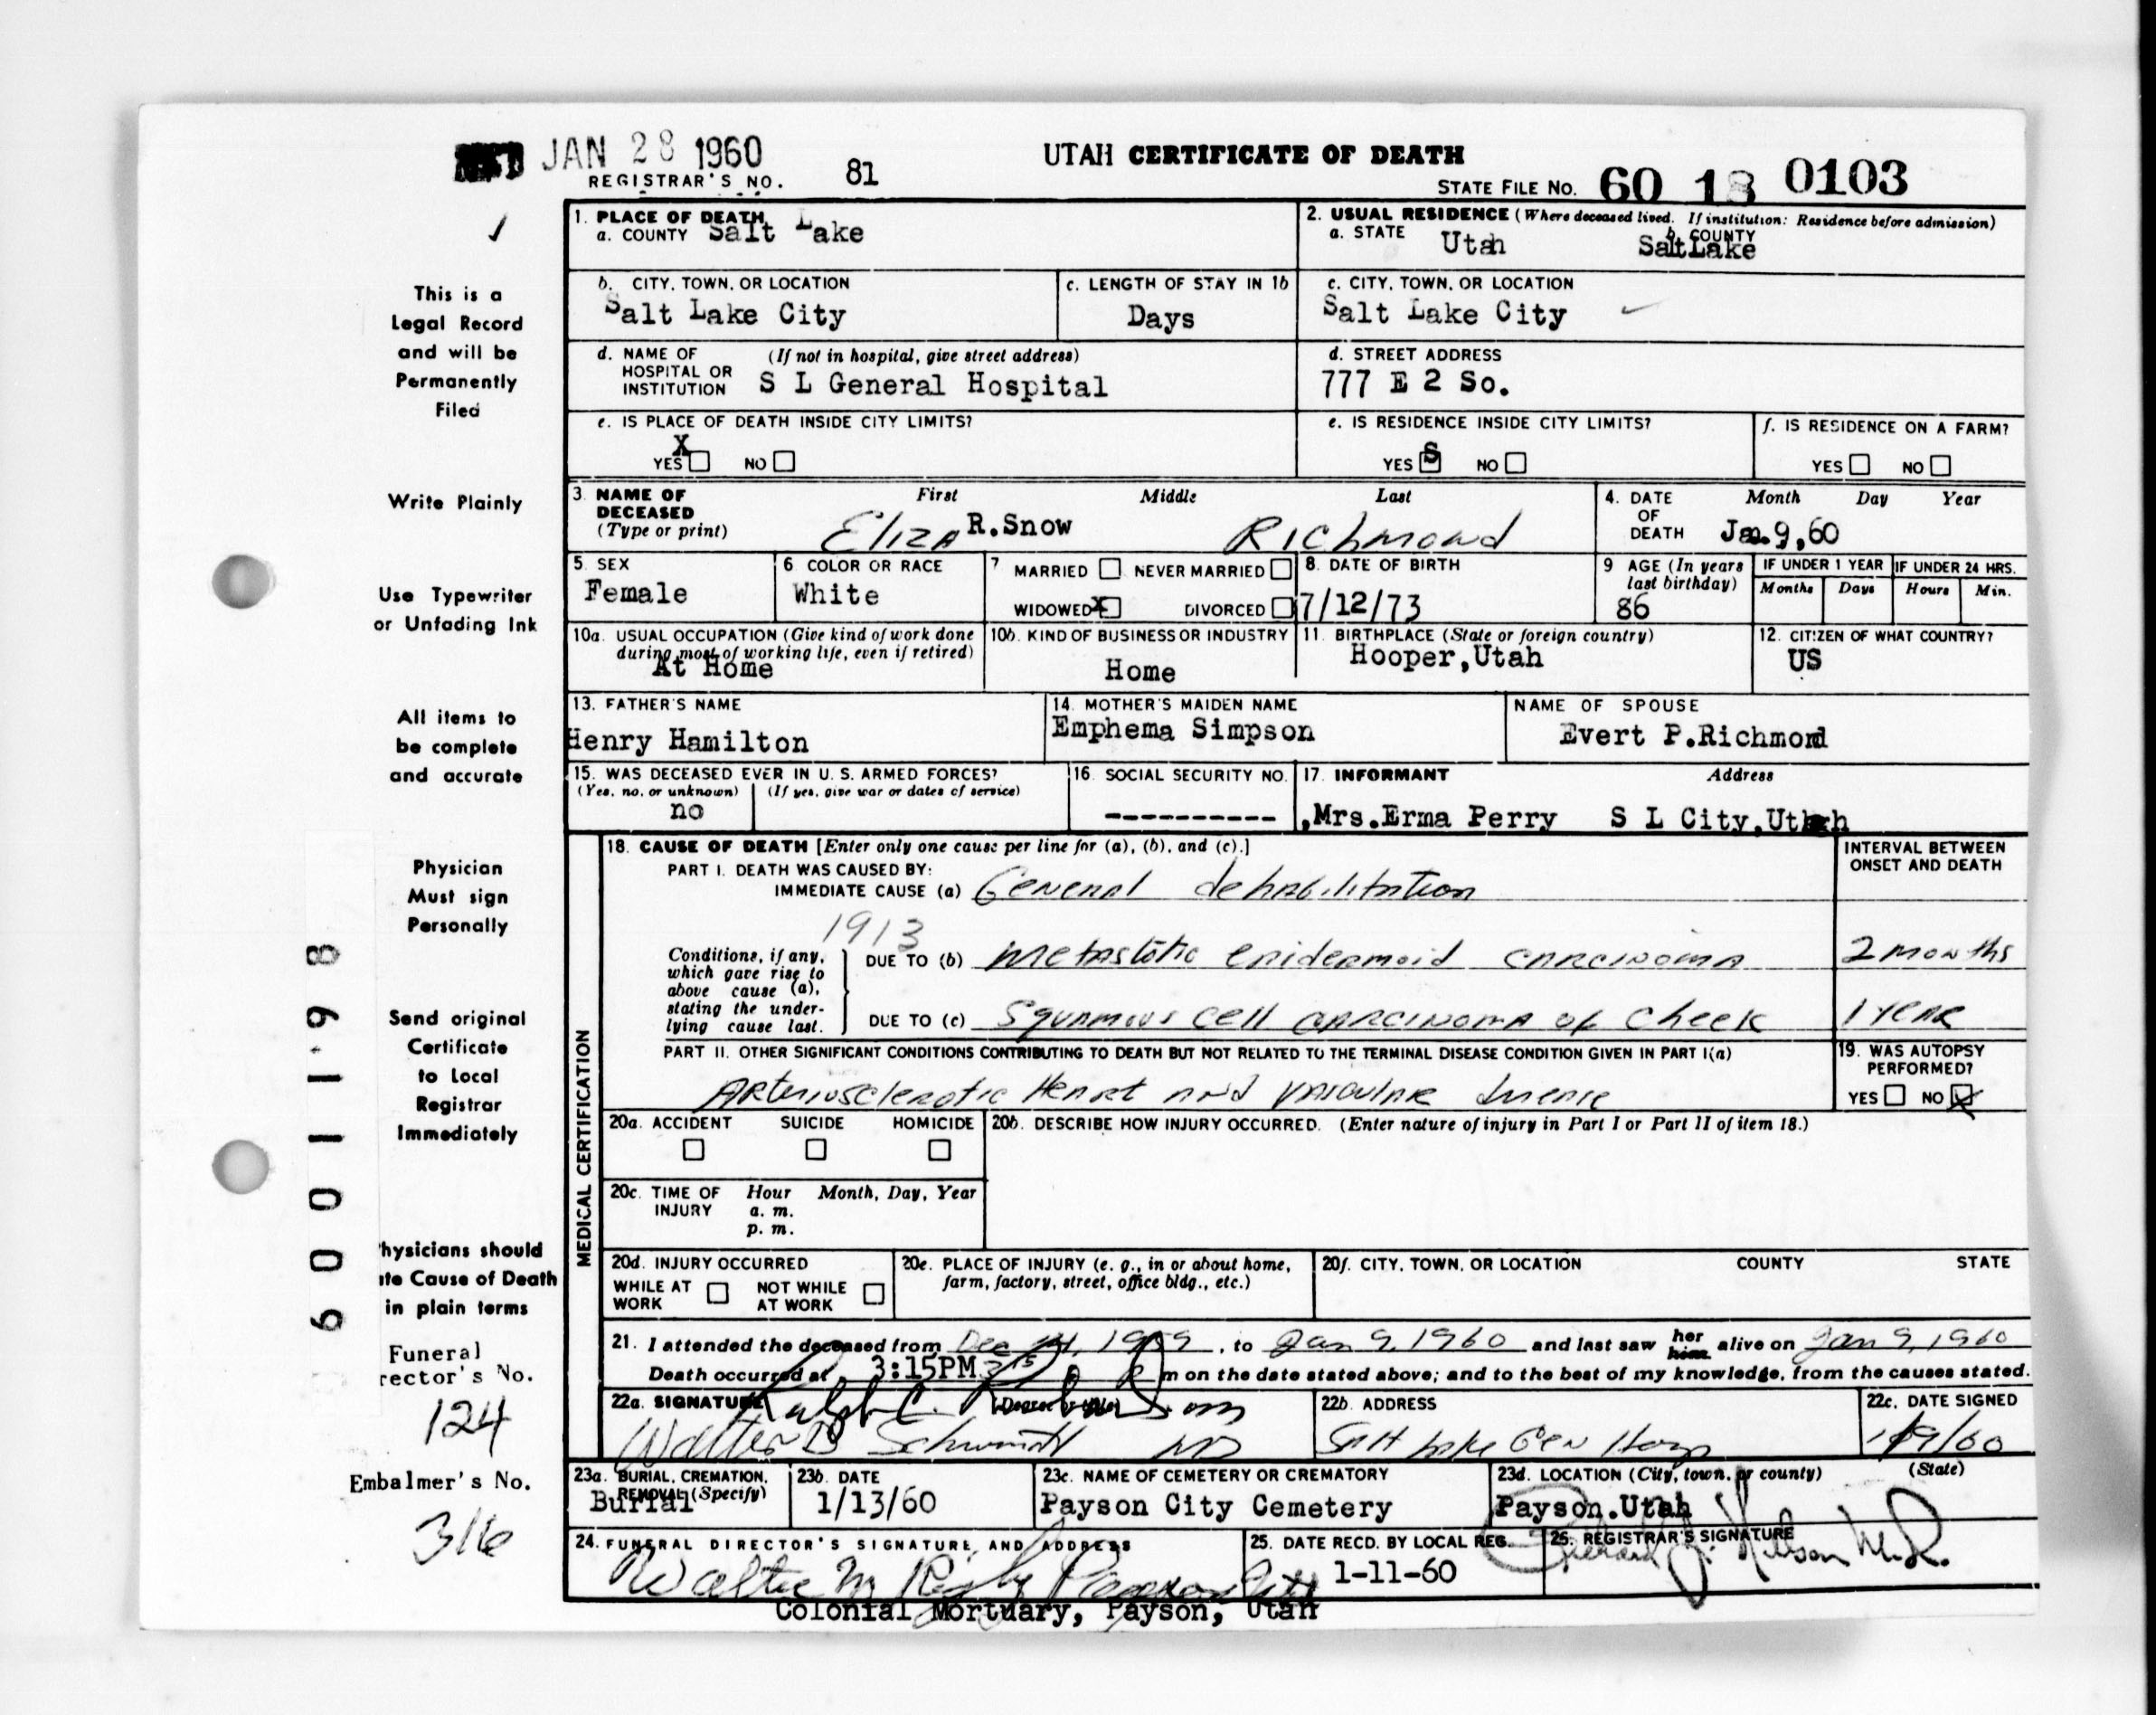 JAN 28 1960
REGISTRAR'S NO. 81
UTAH CERTIFICATE OF DEATH
STATE FILE NO. 60 18 0103
This is a
Legal Record
and will be
Permanently
Filed
Write Plainly
Use Typewriter
or Unfading Ink
All items to
be complete
and accurate
Physician
Must sign
Personally
Send original
Certificate
to Local
Registrar
Immediately
hysicians should
te Cause of Death
in plain terms
Funeral
rector's No.
124
Embalmer's No.
316
6001198
1. PLACE OF DEATH
a. COUNTY Salt Lake
2. USUAL RESIDENCE (Where deceased lived. If institution: Residence before admission)
a. STATE Utah b. COUNTY SaltLake
b. CITY, TOWN, OR LOCATION
Salt Lake City
c. LENGTH OF STAY IN 1b
Days
c. CITY, TOWN, OR LOCATION
Salt Lake City
d. NAME OF HOSPITAL OR INSTITUTION (If not in hospital, give street address)
S L General Hospital
d. STREET ADDRESS
777 E 2 So.
e. IS PLACE OF DEATH INSIDE CITY LIMITS?
X
YES NO
e. IS RESIDENCE INSIDE CITY LIMITS?
YES S NO
f. IS RESIDENCE ON A FARM?
YES NO
3. NAME OF DECEASED (Type or print) First Middle Last
Eliza R.Snow Richmond
4. DATE OF DEATH Month Day Year
Jan.9,60
5. SEX
Female
6. COLOR OR RACE
White
7 MARRIED NEVER MARRIED
WIDOWED X DIVORCED
8. DATE OF BIRTH
7/12/73
9 AGE (In years last birthday)
86
IF UNDER 1 YEAR IF UNDER 24 HRS.
Months Days Hours Min.
10a. USUAL OCCUPATION (Give kind of work done during most of working life, even if retired)
At Home
10b. KIND OF BUSINESS OR INDUSTRY
Home
11. BIRTHPLACE (State or foreign country)
Hooper,Utah
12. CITIZEN OF WHAT COUNTRY?
US
13. FATHER'S NAME
Henry Hamilton
14. MOTHER'S MAIDEN NAME
Emphema Simpson
NAME OF SPOUSE
Evert P.Richmond
15. WAS DECEASED EVER IN U. S. ARMED FORCES?
(Yes, no, or unknown) (If yes, give war or dates of service)
no
16. SOCIAL SECURITY NO.
----------
17. INFORMANT Address
,Mrs.Erma Perry S L City,Utah
MEDICAL CERTIFICATION
18. CAUSE OF DEATH [Enter only one cause per line for (a), (b), and (c).]
INTERVAL BETWEEN ONSET AND DEATH
PART I. DEATH WAS CAUSED BY:
IMMEDIATE CAUSE (a) General dehabilitation
1913
Conditions, if any, which gave rise to above cause (a), stating the underlying cause last.
DUE TO (b) metastatic epidermoid carcinoma 2 months
DUE TO (c) Squamous cell carcinoma of cheek 1 year
PART II. OTHER SIGNIFICANT CONDITIONS CONTRIBUTING TO DEATH BUT NOT RELATED TO THE TERMINAL DISEASE CONDITION GIVEN IN PART I(a)
Arteriosclerotic Heart and vascular disease
19. WAS AUTOPSY PERFORMED?
YES NO X
20a. ACCIDENT SUICIDE HOMICIDE
20b. DESCRIBE HOW INJURY OCCURRED. (Enter nature of injury in Part I or Part II of item 18.)
20c. TIME OF INJURY Hour Month, Day, Year
a. m.
p. m.
20d. INJURY OCCURRED
WHILE AT WORK NOT WHILE AT WORK
20e. PLACE OF INJURY (e. g., in or about home, farm, factory, street, office bldg., etc.)
20f. CITY, TOWN, OR LOCATION COUNTY STATE
21. I attended the deceased from Dec 14, 1959, to Jan 9, 1960 and last saw her him alive on Jan 9, 1960
Death occurred at 3:15PM m on the date stated above; and to the best of my knowledge, from the causes stated.
22a. SIGNATURE (Degree or title)
Ralph C.
Walter B Schmidt MD
22b. ADDRESS
Salt Lake Gen Hosp
22c. DATE SIGNED
1/9/60
23a. BURIAL, CREMATION, REMOVAL (Specify)
Burial
23b. DATE
1/13/60
23c. NAME OF CEMETERY OR CREMATORY
Payson City Cemetery
23d. LOCATION (City, town, or county) (State)
Payson.Utah
24. FUNERAL DIRECTOR'S SIGNATURE AND ADDRESS
Walter M Rigby Payson Utah
Colonial Mortuary, Payson, Utah
25. DATE RECD. BY LOCAL REG.
1-11-60
26. REGISTRAR'S SIGNATURE